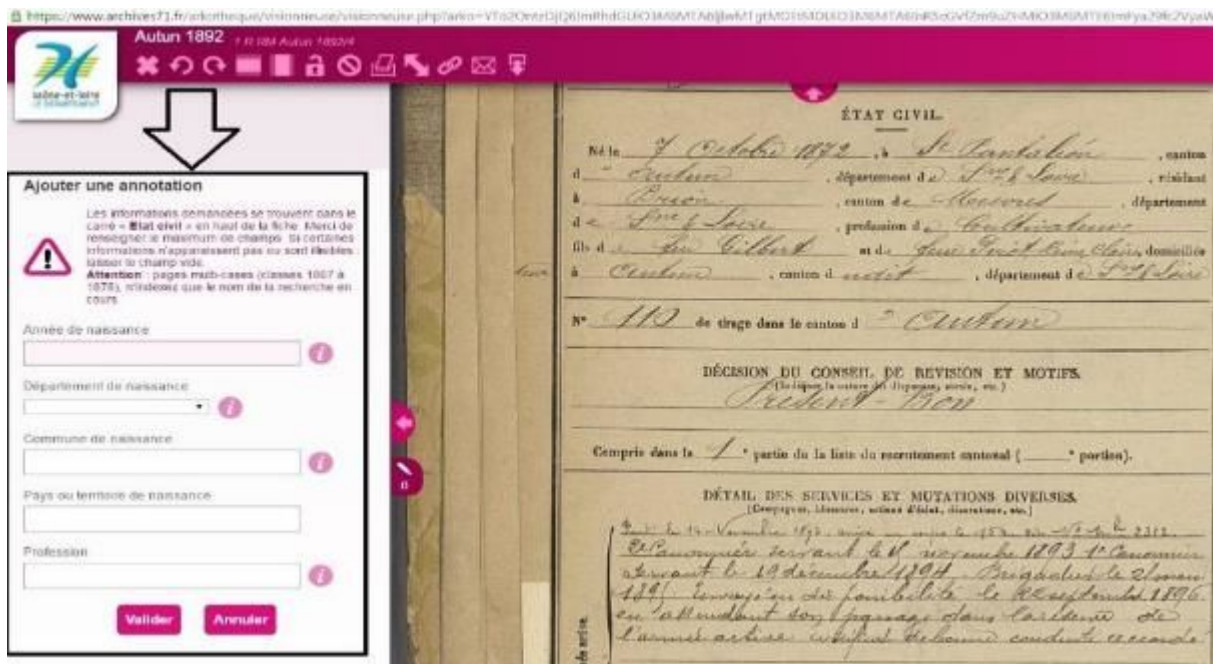 https://www.archives71.fr/arkotheque/visionneuse/visionneuse.php?arko=
Autun 1892 1 R 184 Autun 1892/4
saône-et-loire
LE DÉPARTEMENT
Ajouter une annotation
Les informations demandées se trouvent dans le
carré « Etat civil » en haut de la fiche. Merci de
renseigner le maximum de champs. Si certaines
informations n'apparaissent pas ou sont illisibles
laisser le champ vide.
Attention : pages multi-cases (classes 1867 à
1878), n'indexez que le nom de la recherche en
cours.
Année de naissance
Département de naissance
Commune de naissance
Pays ou territoire de naissance
Profession
Valider Annuler
ÉTAT CIVIL.
Né le 7 Octobre 1872, à St Pantaléon, canton
d Autun, département de Sne & Loire, résidant
à Brion, canton de Mesvres, département
de Sne & Loire, profession de Cultivateur
fils de feu Gilbert et de, domiciliés
à Autun, canton d udit, département de Sne & Loire
N° 110 de tirage dans le canton d Autun
DÉCISION DU CONSEIL DE REVISION ET MOTIFS.
Présent - Bon
Compris dans la 1e partie de la liste du recrutement cantonal ( e portion).
DÉTAIL DES SERVICES ET MUTATIONS DIVERSES.
(Campagnes, blessures, actions d'éclat, décorations, etc.)
2e Canonnier servant le novembre 1893 1er Canonnier
servant le 19 décembre 1894 Brigadier le
Envoyé en disponibilité le septembre 1896
en attendant son passage dans la réserve de
l'armée active conduite accordé